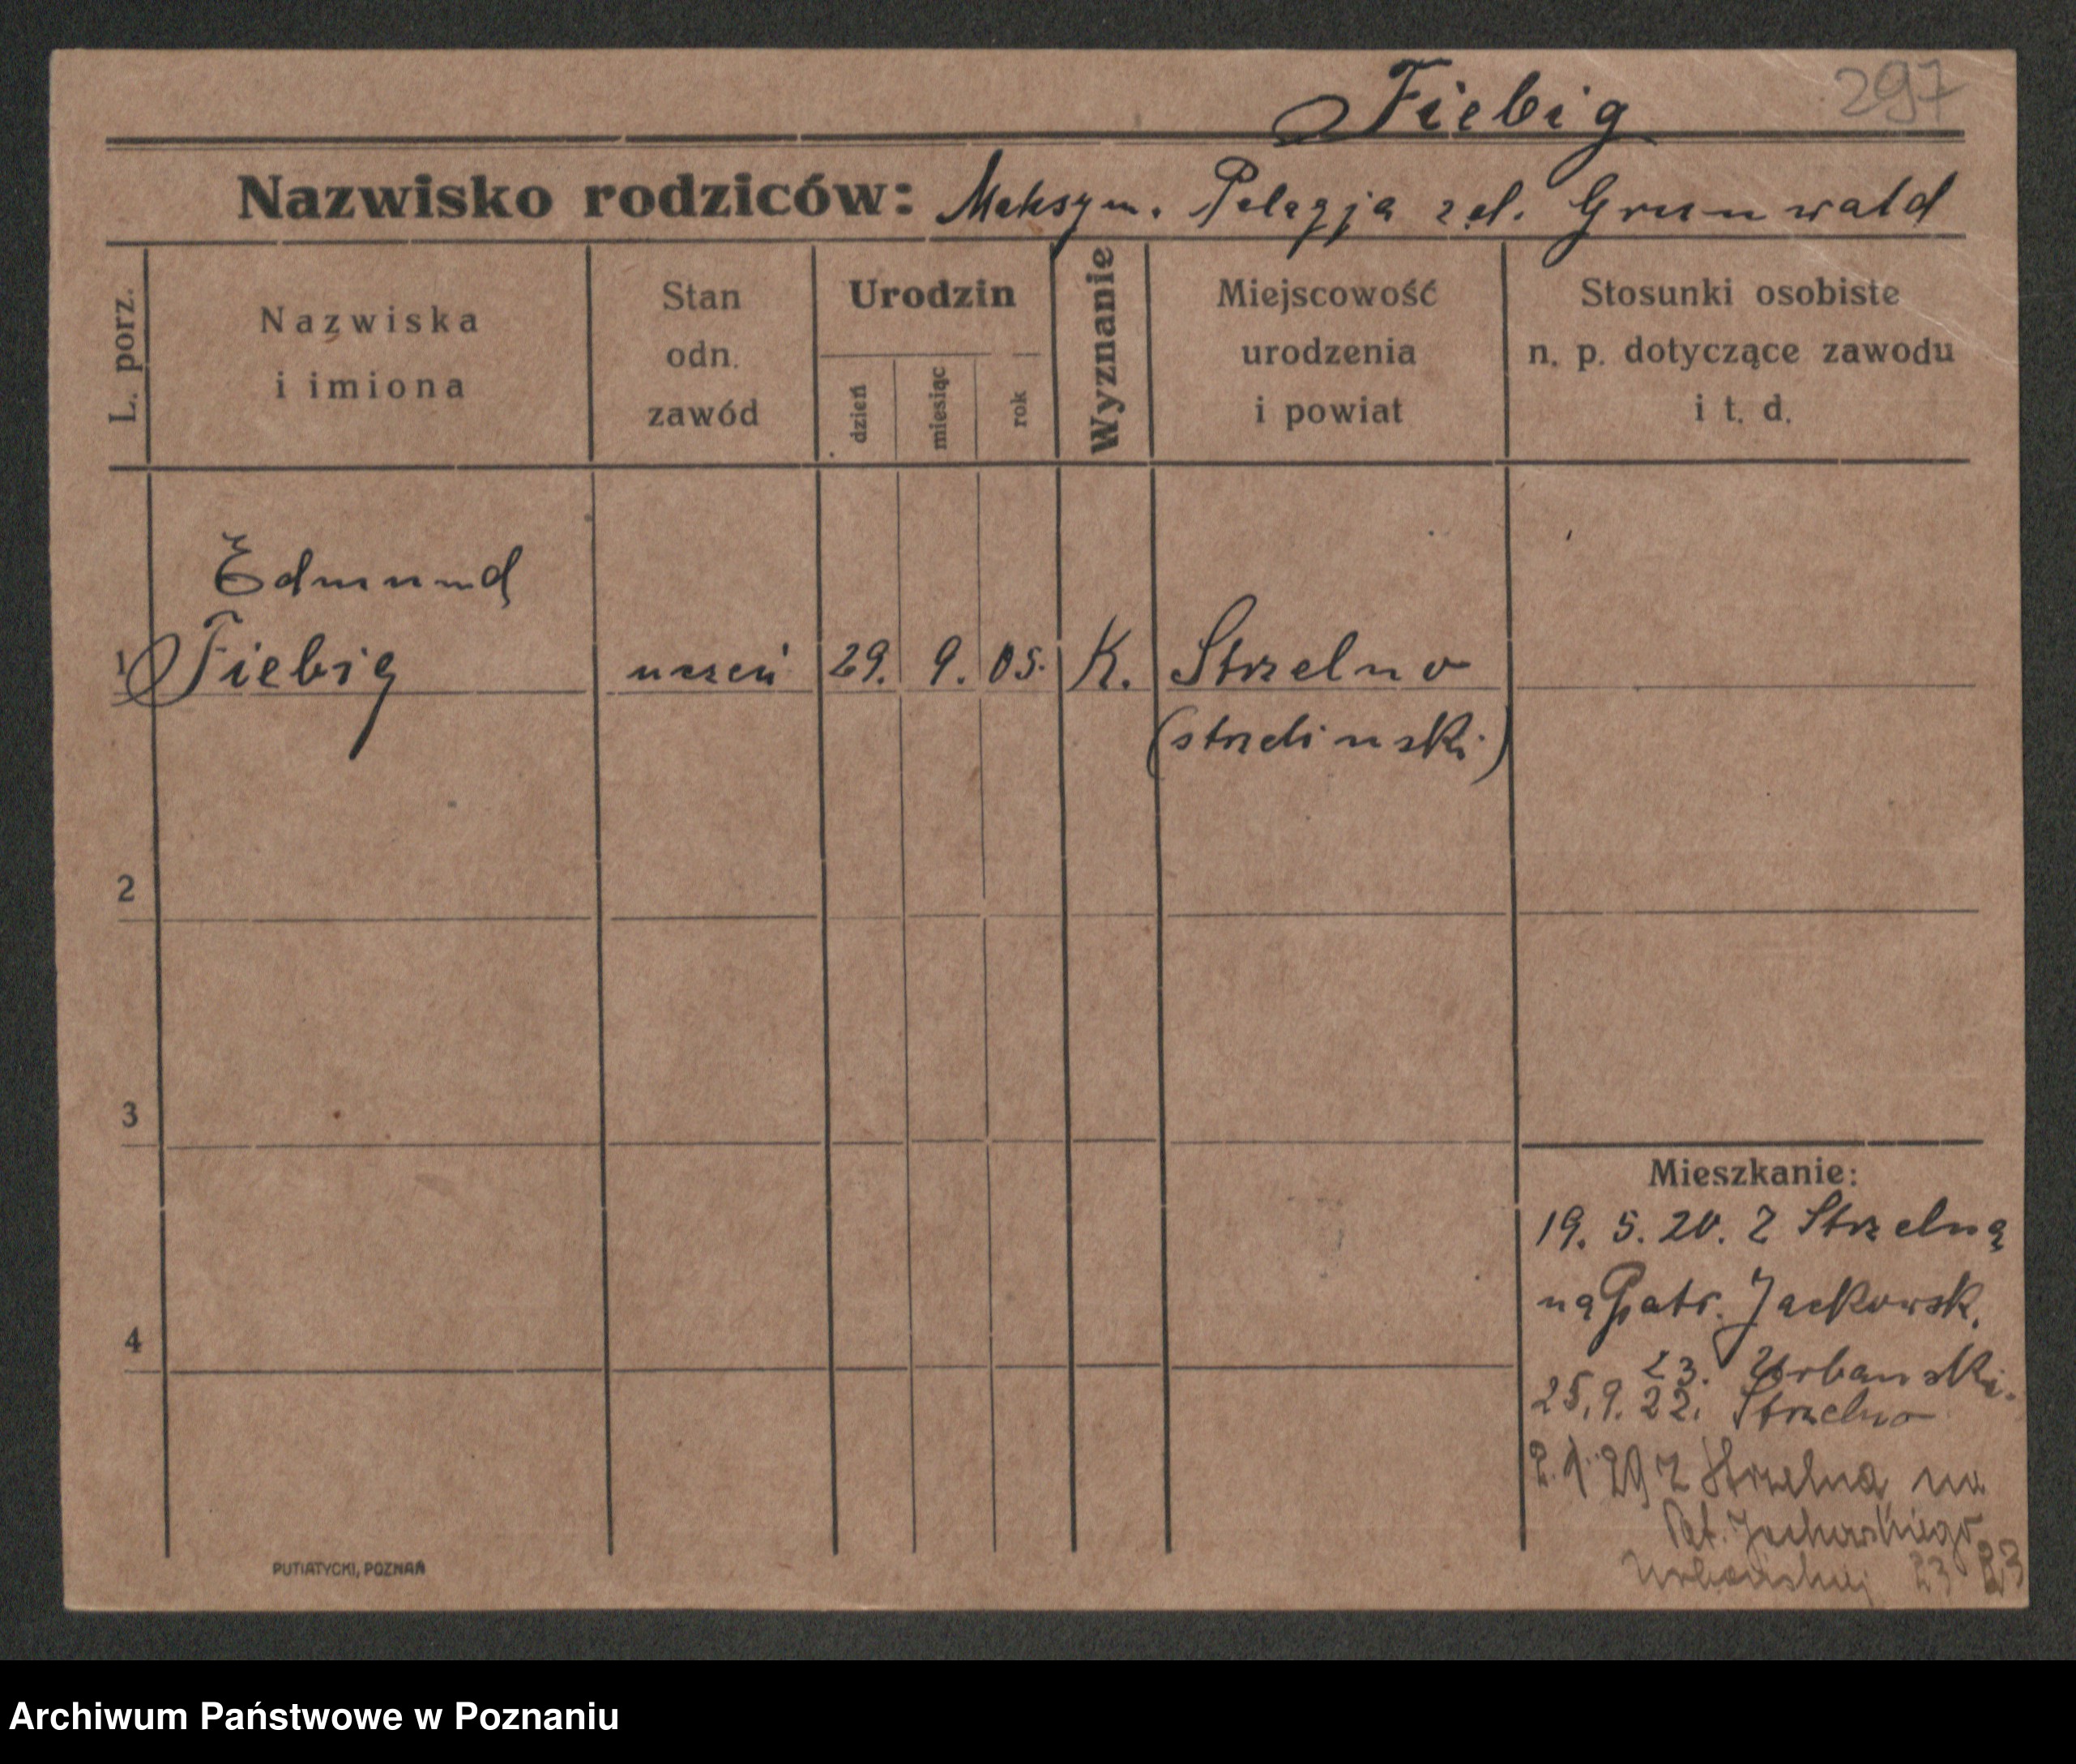 Fiebig 297
Nazwisko rodziców: Maksym. Pelagja zd. Grunwald
L. porz.
Nazwiska
i imiona
Stan
odn.
zawód
Urodzin
dzień
miesiąc
rok
Wyznanie
Miejscowość
urodzenia
i powiat
Stosunki osobiste
n. p. dotyczące zawodu
i t. d.
Edmund
1 Fiebig uczeń 29. 9. 05. K. Strzelno
(strzelinski)
2
3
4
Mieszkanie:
19. 5. 20. z Strzelna
na Patr. Jackowsk.
23. Urbanski.
25.9.22. Strzelno
z Strzelna na
Pat. Jackowskiego
23 23
PUTIATYCKI, POZNAŃ
Archiwum Państwowe w Poznaniu